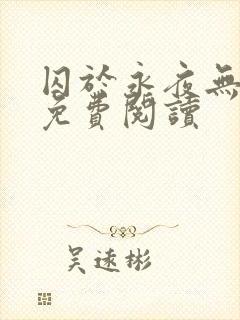 囚於永夜無
免費閱讀
吳遠彬